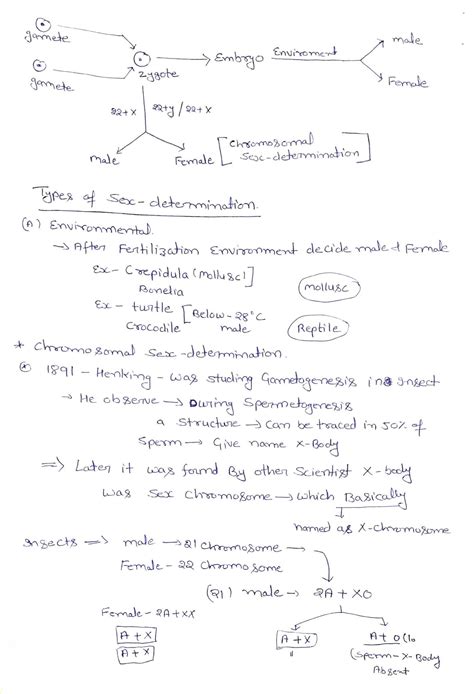 gamete
gamete
Zygote
Embryo
Enviroment
male
Female
22+X
22+y / 22+X
male
Female
[Chromosomal
Sex-determination]
Types of Sex-determination
(A) Environmental
→ After Fertilization Environment decide male & Female
Ex- Crepidula (Mollusc)]
Bonelia
Mollusc
Ex - turtle [Below-28°C
Crocodile male
Reptile
* Chromosomal Sex-determination.
1891 - Henking - was studing Gametogenesis in Insect
→ He observe → During Spermetogenesis
a Structure → Can be traced in 50% of
Sperm → Give name X-Body
⇒ Later it was found By other Scientist X-body
was Sex Chromosome → which Basically
named as X-chromosome
Insects ⇒ male → 21 Chromosome →
Female - 22 Chromosome
(21) male → 2A + XO
Female - 2A+XX
A + X
A + X
A + X
A+ O
(Sperm-X-Body
Absent